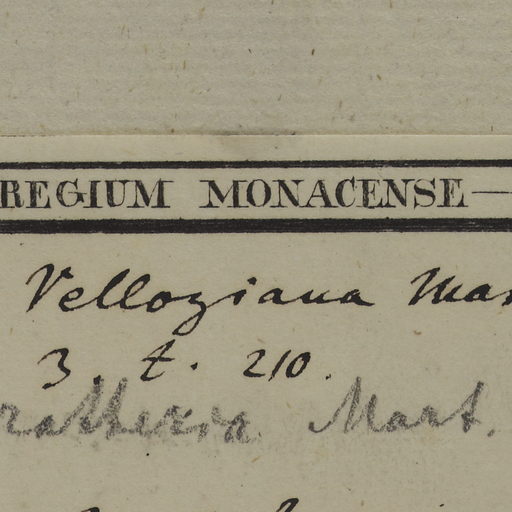 REGIUM MONACENSE
Velloziana Mar
3. t. 210.
ratheria Mart.